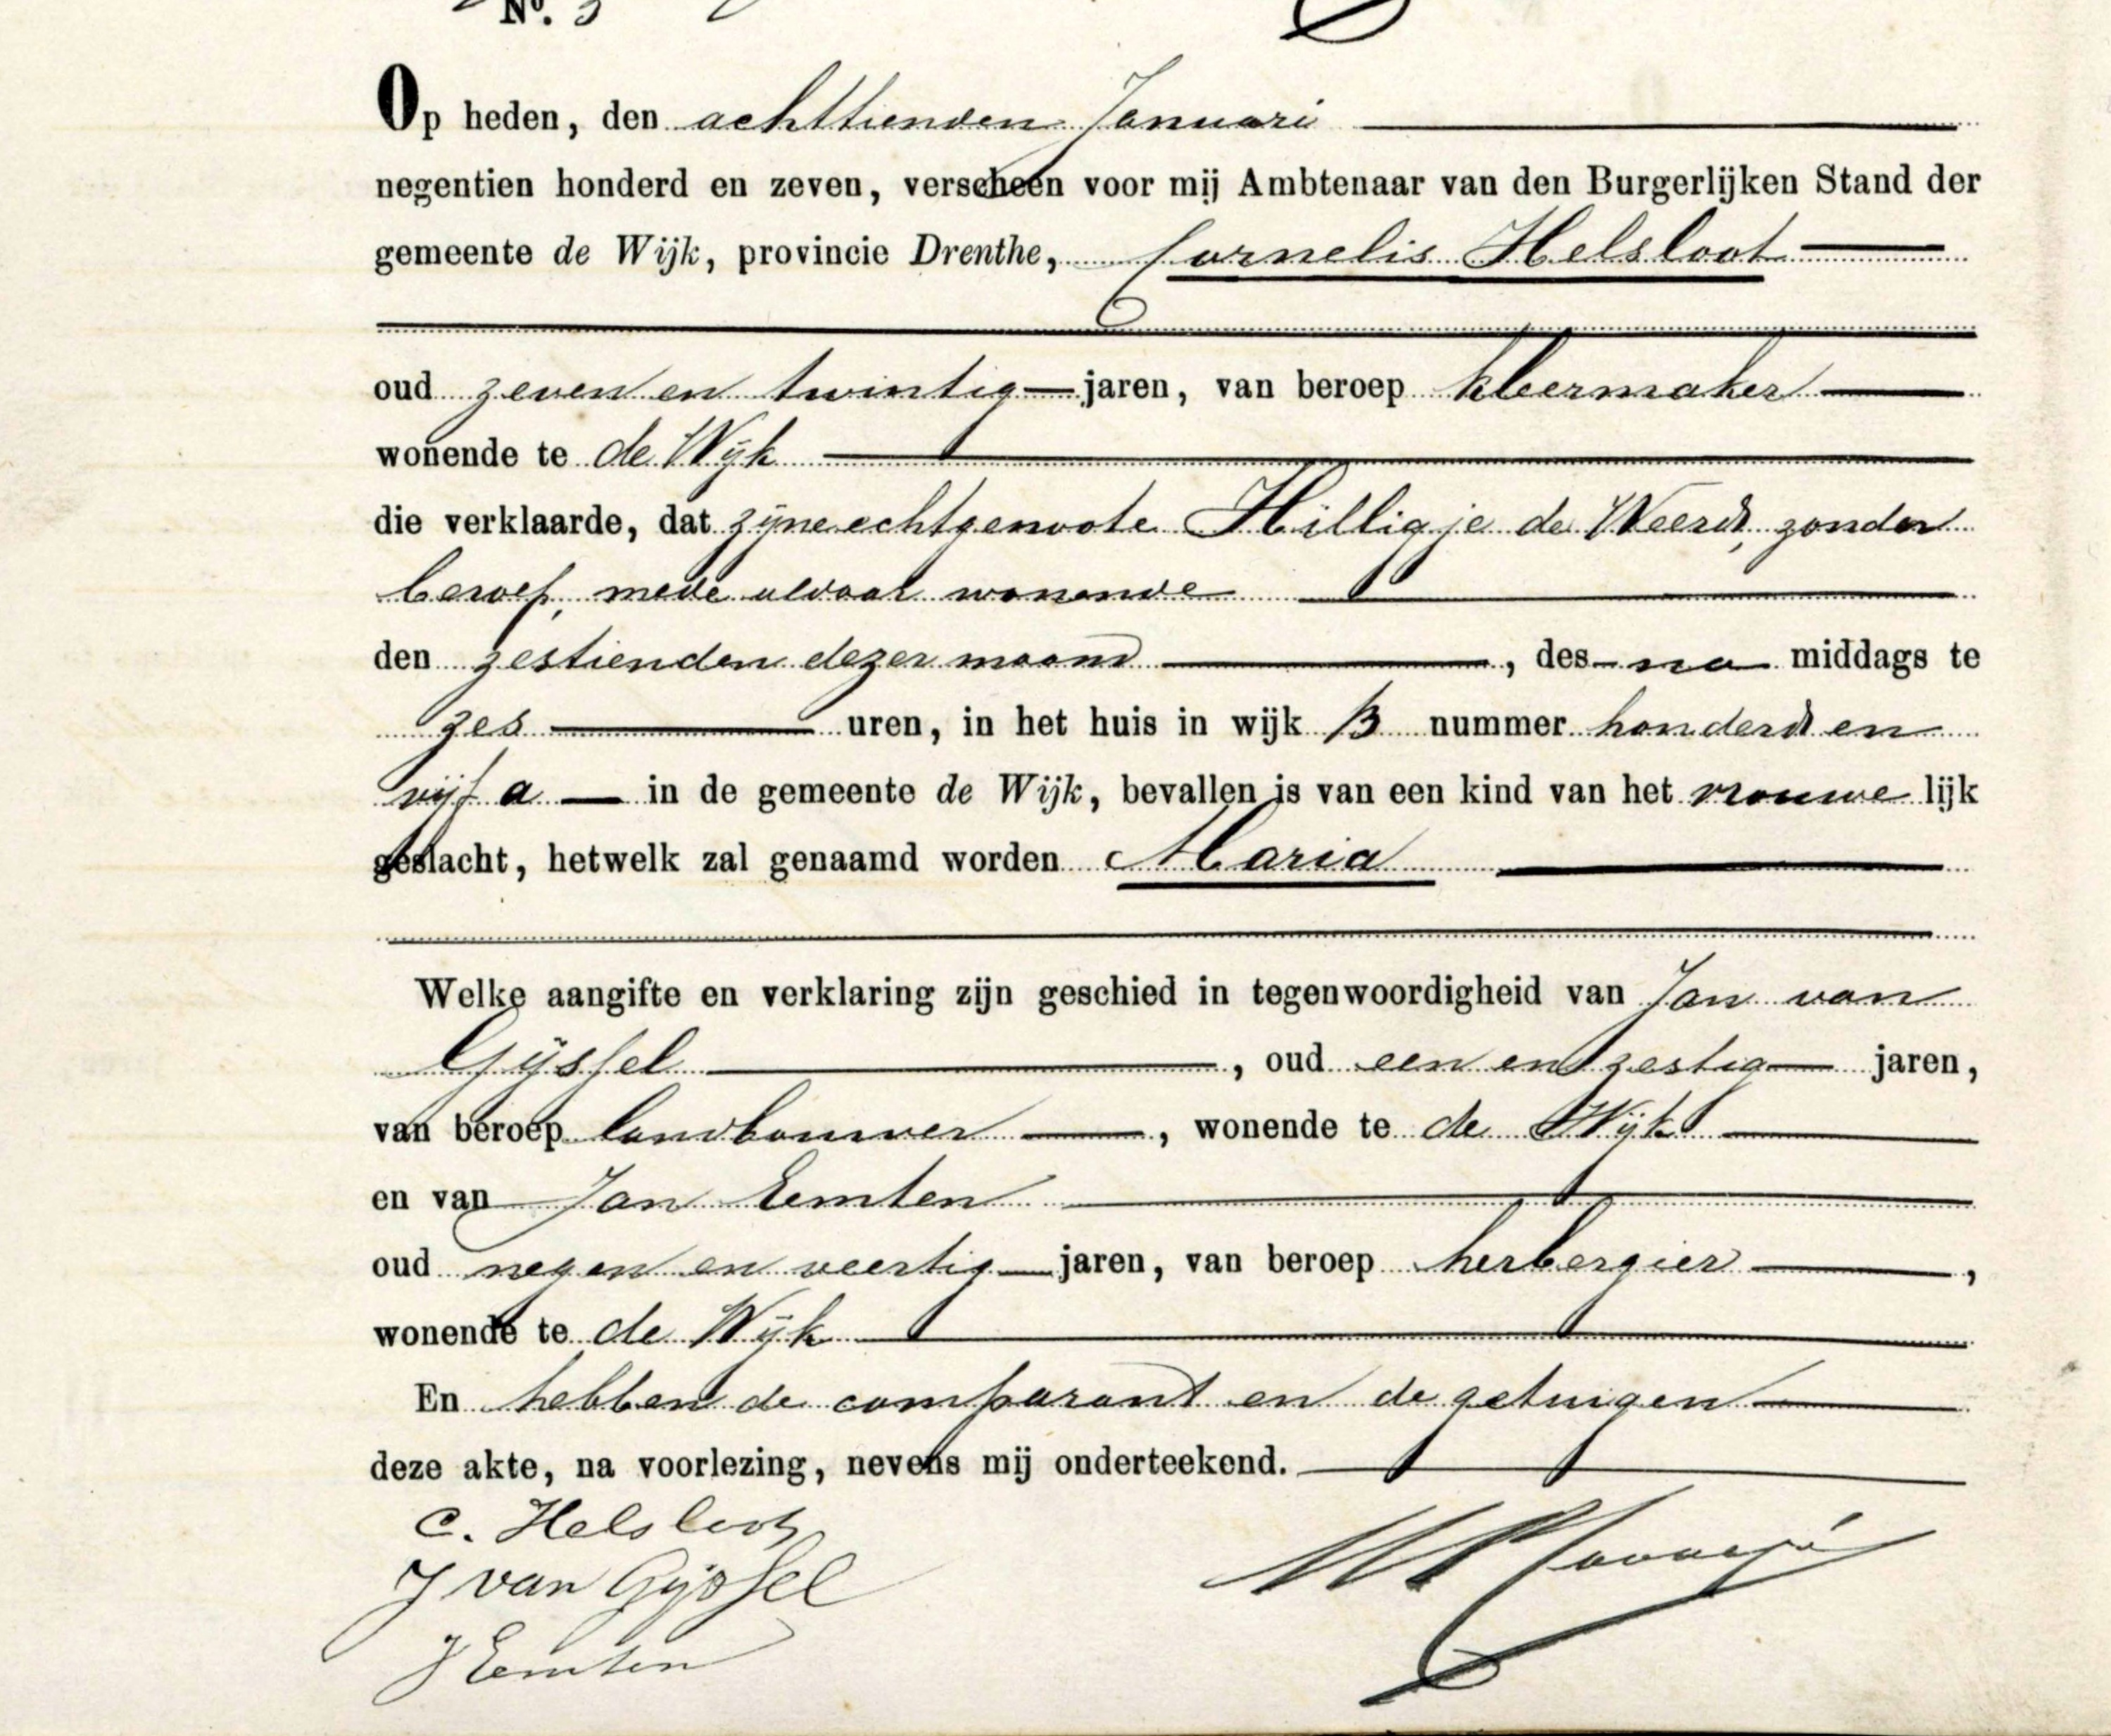 No. 3
Op heden, den achttienden Januari
negentien honderd en zeven, verscheen voor mij Ambtenaar van den Burgerlijken Stand der
gemeente de Wijk, provincie Drenthe, Cornelis Helsloot
oud zeven en twintig jaren, van beroep kleermaker
wonende te de Wijk
die verklaarde, dat zijne echtgenoote Hilligje de Weerd, zonder
beroep, mede aldaar wonende
den zestienden dezer maand, des na middags te
zes uren, in het huis in wijk B nummer honderd en
vijf a in de gemeente de Wijk, bevallen is van een kind van het vrouwe lijk
geslacht, hetwelk zal genaamd worden Maria
Welke aangifte en verklaring zijn geschied in tegenwoordigheid van Jan van
Gijssel, oud een en zestig jaren,
van beroep landbouwer, wonende te de Wijk
en van Jan Eemten
oud negen en veertig jaren, van beroep herbergier,
wonende te de Wijk
En hebben de comparant en de getuigen
deze akte, na voorlezing, nevens mij onderteekend.
C. Helsloot
J van Gijssel
J Eemten